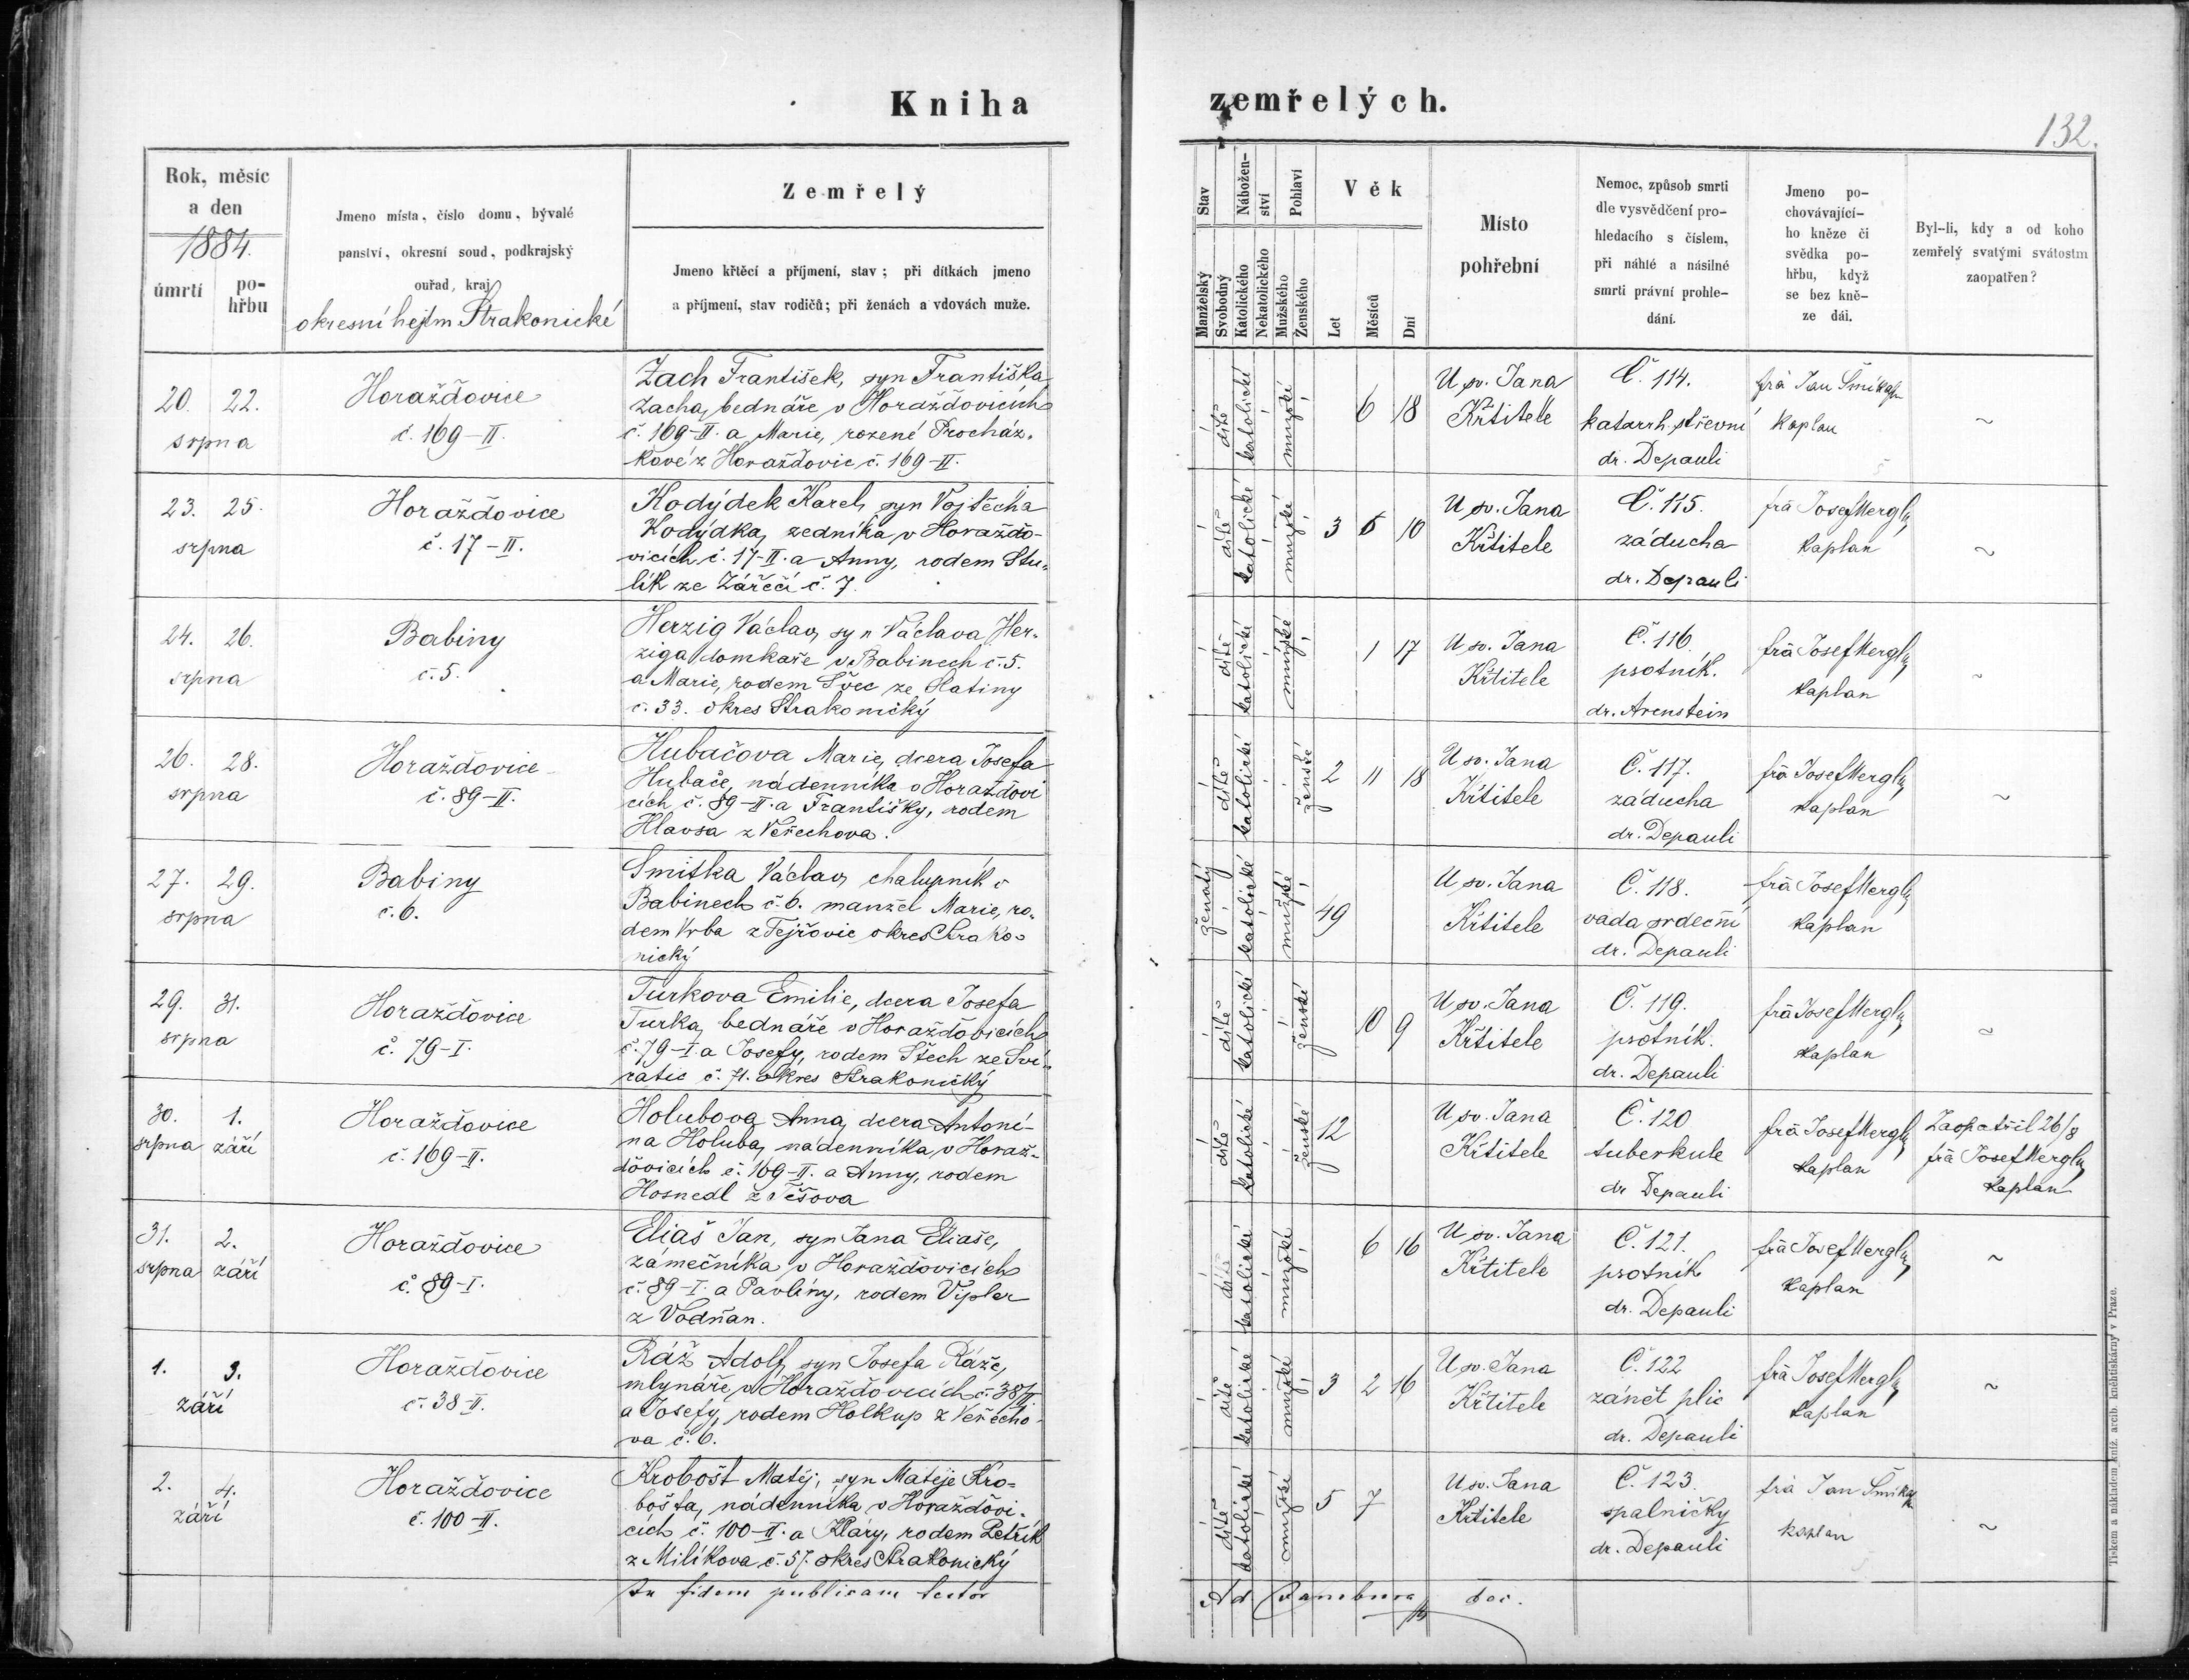 Kniha zemřelých.
132.
Rok, měsíc
a den
1884.
úmrtí
po-
hřbu
Jmeno místa, číslo domu, bývalé
panství, okresní soud, podkrajský
ouřad, kraj
okresní hejtm Strakonické
Zemřelý
Jmeno křtěcí a příjmení, stav; při dítkách jmeno
a příjmení, stav rodičů; při ženách a vdovách muže.
Stav
Manželský
Svobodný
Nábožen-
ství
Katolického
Nekatolického
Pohlaví
Mužského
Ženského
Věk
Let
Měsíců
Dní
Místo
pohřební
Nemoc, způsob smrti
dle vysvědčení pro-
hledacího s číslem,
při náhlé a násilné
smrti právní prohle-
dání.
Jmeno po-
chovávající-
ho kněze či
svědka po-
hřbu, když
se bez kně-
ze dái.
Byl-li, kdy a od koho
zemřelý svatými svátostm
zaopatřen?
20. 22.
srpna
Horažďovice
č. 169-II.
Zach František, syn Františka
Zacha, bednáře v Horažďovicích
č. 169-II. a Marie, rozené Procház-
kové z Horažďovic č. 169-II.
dítě
katolické
mužské
6 18
U sv. Jana
Křtitele
Č. 114.
katarrh střevní
dr. Depauli
frá Jan
kaplan
~
23. 25.
srpna
Horažďovice
č. 17-II.
Kodýdek Karel, syn Vojtěcha
Kodýdka, zedníka v Horažďo-
vicích č. 17-II. a Anny, rodem Stu-
lík ze Zářečí č. 7.
dítě
katolické
mužské
3 5 10
U sv. Jana
Křtitele
Č. 115.
záducha
dr. Depauli
frá Josef Mergl
kaplan
~
24. 26.
srpna
Babiny
č. 5.
Herzig Václav, syn Václava Her-
ziga domkaře v Babinech č. 5.
a Marie, rodem Švec ze Slatiny
č. 33. okres Strakonický
dítě
katolické
mužské
1 17
U sv. Jana
Křtitele
Č. 116.
psotník.
dr. Arenstein
frá Josef Mergl
kaplan
~
26. 28.
srpna
Horažďovice
č. 89-II.
Hubačova Marie, dcera Josefa
Hubače, nádenníka v Horažďovi
cích č. 89-II. a Františky, rodem
Hlavsa z Veřechova.
dítě
katolické
ženské
2 11 18
U sv. Jana
Křtitele
Č. 117.
záducha
dr. Depauli
frá Josef Mergl
kaplan
~
27. 29.
srpna
Babiny
č. 6.
Smitka Václav, chalupník v
Babinech č. 6. manžel Marie, ro-
dem Vrba z Tejřovic okres Strako-
nický
ženatý
katolické
mužské
49
U sv. Jana
Křtitele
Č. 118.
vada srdeční
dr. Depauli
frá Josef Mergl
kaplan
29. 31.
srpna
Horažďovice
č. 79-I.
Turkova Emilie, dcera Josefa
Turka, bednáře v Horažďovicích
č. 79-I. a Josefy, rodem Štech ze Svi-
ratic č. 71. okres Strakonický
dítě
katolické
ženské
10 9
U sv. Jana
Křtitele
Č. 119.
psotník.
dr. Depauli
frá Josef Mergl
kaplan
~
30. 1.
srpna září
Horažďovice
č. 169-II.
Holubova Anna, dcera Antoní-
na Holuba, nádenníka v Horaž-
ďovicích č. 169-II. a Anny, rodem
Hosnedl z Těšova
dítě
katolické
ženské
12
U sv. Jana
Křtitele
Č. 120
tuberkule
dr Depauli
frá Josef Mergl
kaplan
Zaopatřil 26/8
frá Josef Mergl
kaplan
31. 2.
srpna září
Horažďovice
č. 89-I.
Eliaš Jan, syn Jana Eliaše,
zámečníka v Horažďovicích
č. 89-I. a Pavlíny, rodem Vipler
z Vodňan.
dítě
katolické
mužské
6 16
U sv. Jana
Křtitele
Č. 121.
psotník
dr. Depauli
frá Josef Mergl
kaplan
~
1. 3.
září
Horažďovice
č. 38-II.
Ráž Adolf, syn Josefa Ráže,
mlynáře v Horažďovicích č. 38/II
a Josefy, rodem Holkup z Veřecho-
va č. 6.
dítě
katolické
mužské
3 2 16
U sv. Jana
Křtitele
Č. 122
zánět plic
dr. Depauli
frá Josef Mergl
kaplan
~
2. 4.
září
Horažďovice
č. 100-II.
Krobošt Matěj, syn Matěje Kro-
bošta, nádenníka v Horažďovi-
cích č. 100-II. a Kláry, rodem Petřík
z Milíkova č. 57. okres Strakonický
dítě
katolické
mužské
5 7
U sv. Jana
Křtitele
Č. 123.
spalničky
dr. Depauli
frá Jan
kaplan
~
In fidem publicam testor
Ad Jambura dec.
Tiskem a nákladem kníž. arcib. knihtiskárny v Praze.